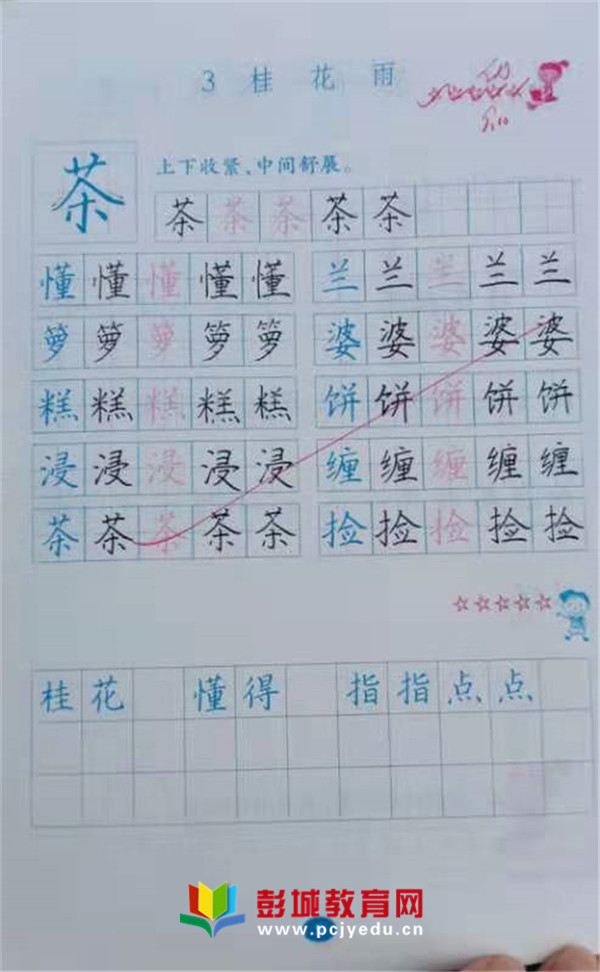 3 桂 花 雨
9.10
茶 上下收紧、中间舒展。
茶 茶 茶 茶 茶
懂 懂 懂 懂 懂 兰 兰 兰 兰 兰
箩 箩 箩 箩 箩 婆 婆 婆 婆 婆
糕 糕 糕 糕 糕 饼 饼 饼 饼 饼
浸 浸 浸 浸 浸 缠 缠 缠 缠 缠
茶 茶 茶 茶 茶 捡 捡 捡 捡 捡
☆☆☆☆☆
桂 花 懂 得 指 指 点 点
彭城教育网
www.pcjyedu.cn